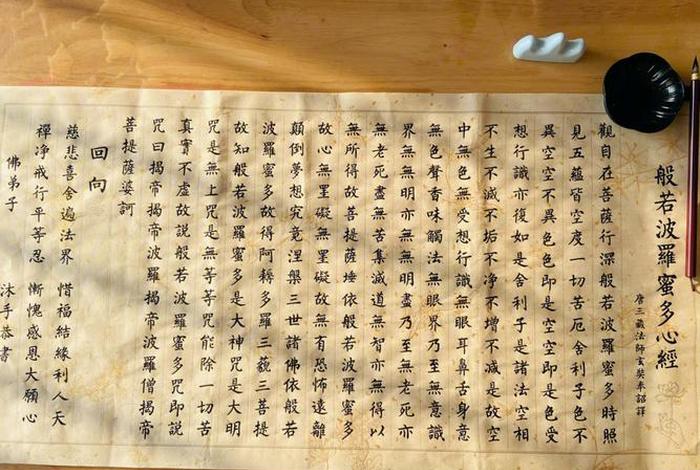 般若波羅蜜多心經
唐三藏法師玄奘奉詔譯
觀自在菩薩行深般若波羅蜜多時照
見五蘊皆空度一切苦厄舍利子色不
異空空不異色色即是空空即是色受
想行識亦復如是舍利子是諸法空相
不生不滅不垢不净不增不減是故空
中無色無受想行識無眼耳鼻舌身意
無色聲香味觸法無眼界乃至無意識
界無無明亦無無明盡乃至無老死亦
無老死盡無苦集滅道無智亦無得以
無所得故菩提薩埵依般若波羅蜜多
故心無罣礙無罣礙故無有恐怖遠離
顛倒夢想究竟涅槃三世諸佛依般若
波羅蜜多故得阿耨多羅三藐三菩提
故知般若波羅蜜多是大神咒是大明
咒是無上咒是無等等咒能除一切苦
真實不虛故說般若波羅蜜多咒即說
咒曰揭帝揭帝波羅揭帝波羅僧揭帝
菩提薩婆訶
回向
慈悲喜舍遍法界 惜福結緣利人天
禪净戒行平等忍 慚愧感恩大願心
佛弟子
沐手恭書